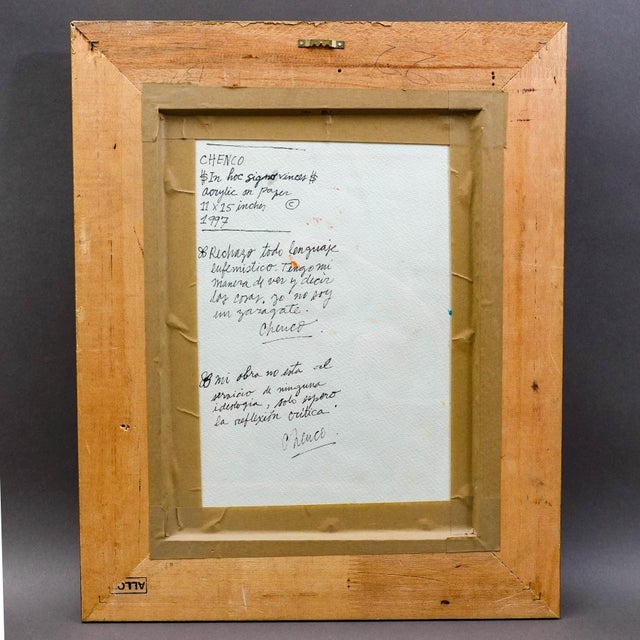 CHENCO
$In hoc signo vinces$
acrylic on paper
11 x 15 inches ©
1997
Rechazo todo lenguaje
eufemístico. Tengo mi
manera de ver y decir
las cosas, yo no soy
un zaragate.
Chenco.
mi obra no esta al
servicio de ninguna
ideología, solo espero
la reflexión crítica.
Chenco.